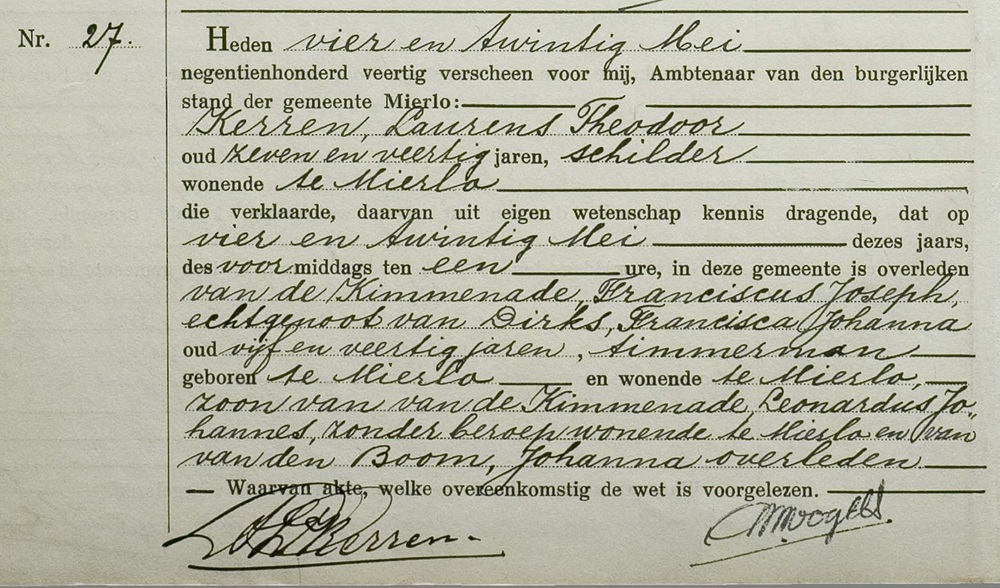 Nr. 27.
Heden vier en twintig Mei
negentienhonderd veertig verscheen voor mij, Ambtenaar van den burgerlijken
stand der gemeente Mierlo:
Kerren, Laurens Theodoor
oud zeven en veertig jaren, schilder
wonende te Mierlo
die verklaarde, daarvan uit eigen wetenschap kennis dragende, dat op
vier en twintig Mei dezes jaars,
des voormiddags ten een ure, in deze gemeente is overleden
van de Kimmenade, Franciscus Joseph,
echtgenoot van Dirks, Francisca Johanna
oud vijf en veertig jaren, timmerman
geboren te Mierlo en wonende te Mierlo,
zoon van van de Kimmenade, Leonardus Jo-
hannes, zonder beroep wonende te Mierlo en van
van den Boom, Johanna overleden
Waarvan akte, welke overeenkomstig de wet is voorgelezen.
Kerren